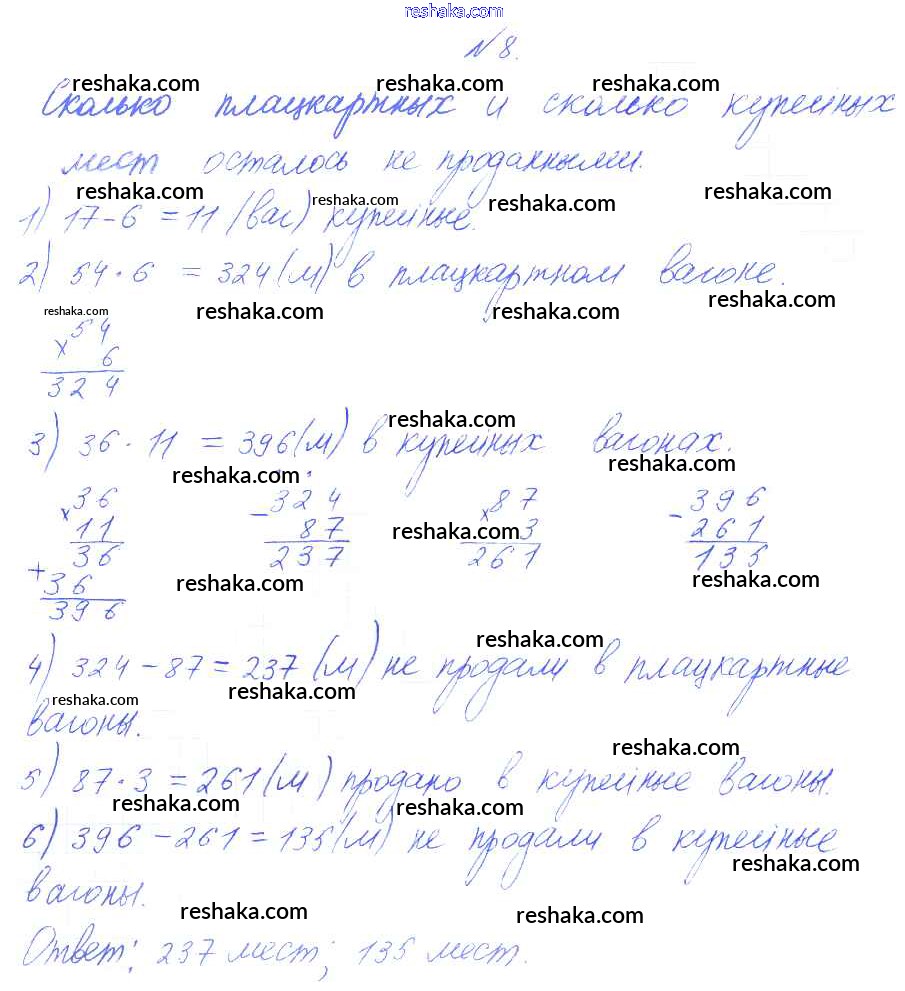 reshaka.com
№8.
reshaka.com reshaka.com reshaka.com
Сколько плацкартных и сколько купейных
мест осталось не проданными.
reshaka.com reshaka.com reshaka.com reshaka.com
1) 17-6 = 11 (ваг) купейные.
2) 54·6 = 324(м) в плацкартном вагоне.
reshaka.com reshaka.com reshaka.com reshaka.com
× 54
6
324
reshaka.com
3) 36·11 = 396(м) в купейных вагонах.
reshaka.com reshaka.com
× 36 - 324 × 87 - 396
11 87 3 261
36 237 261 135
+ 36
396
reshaka.com reshaka.com reshaka.com
reshaka.com
4) 324-87=237(м) не продали в плацкартные
reshaka.com reshaka.com
вагоны.
reshaka.com
5) 87·3=261(м) продано в купейные вагоны.
reshaka.com reshaka.com
6) 396-261=135(м) не продали в купейные
reshaka.com
вагоны.
reshaka.com reshaka.com
Ответ: 237 мест; 135 мест.